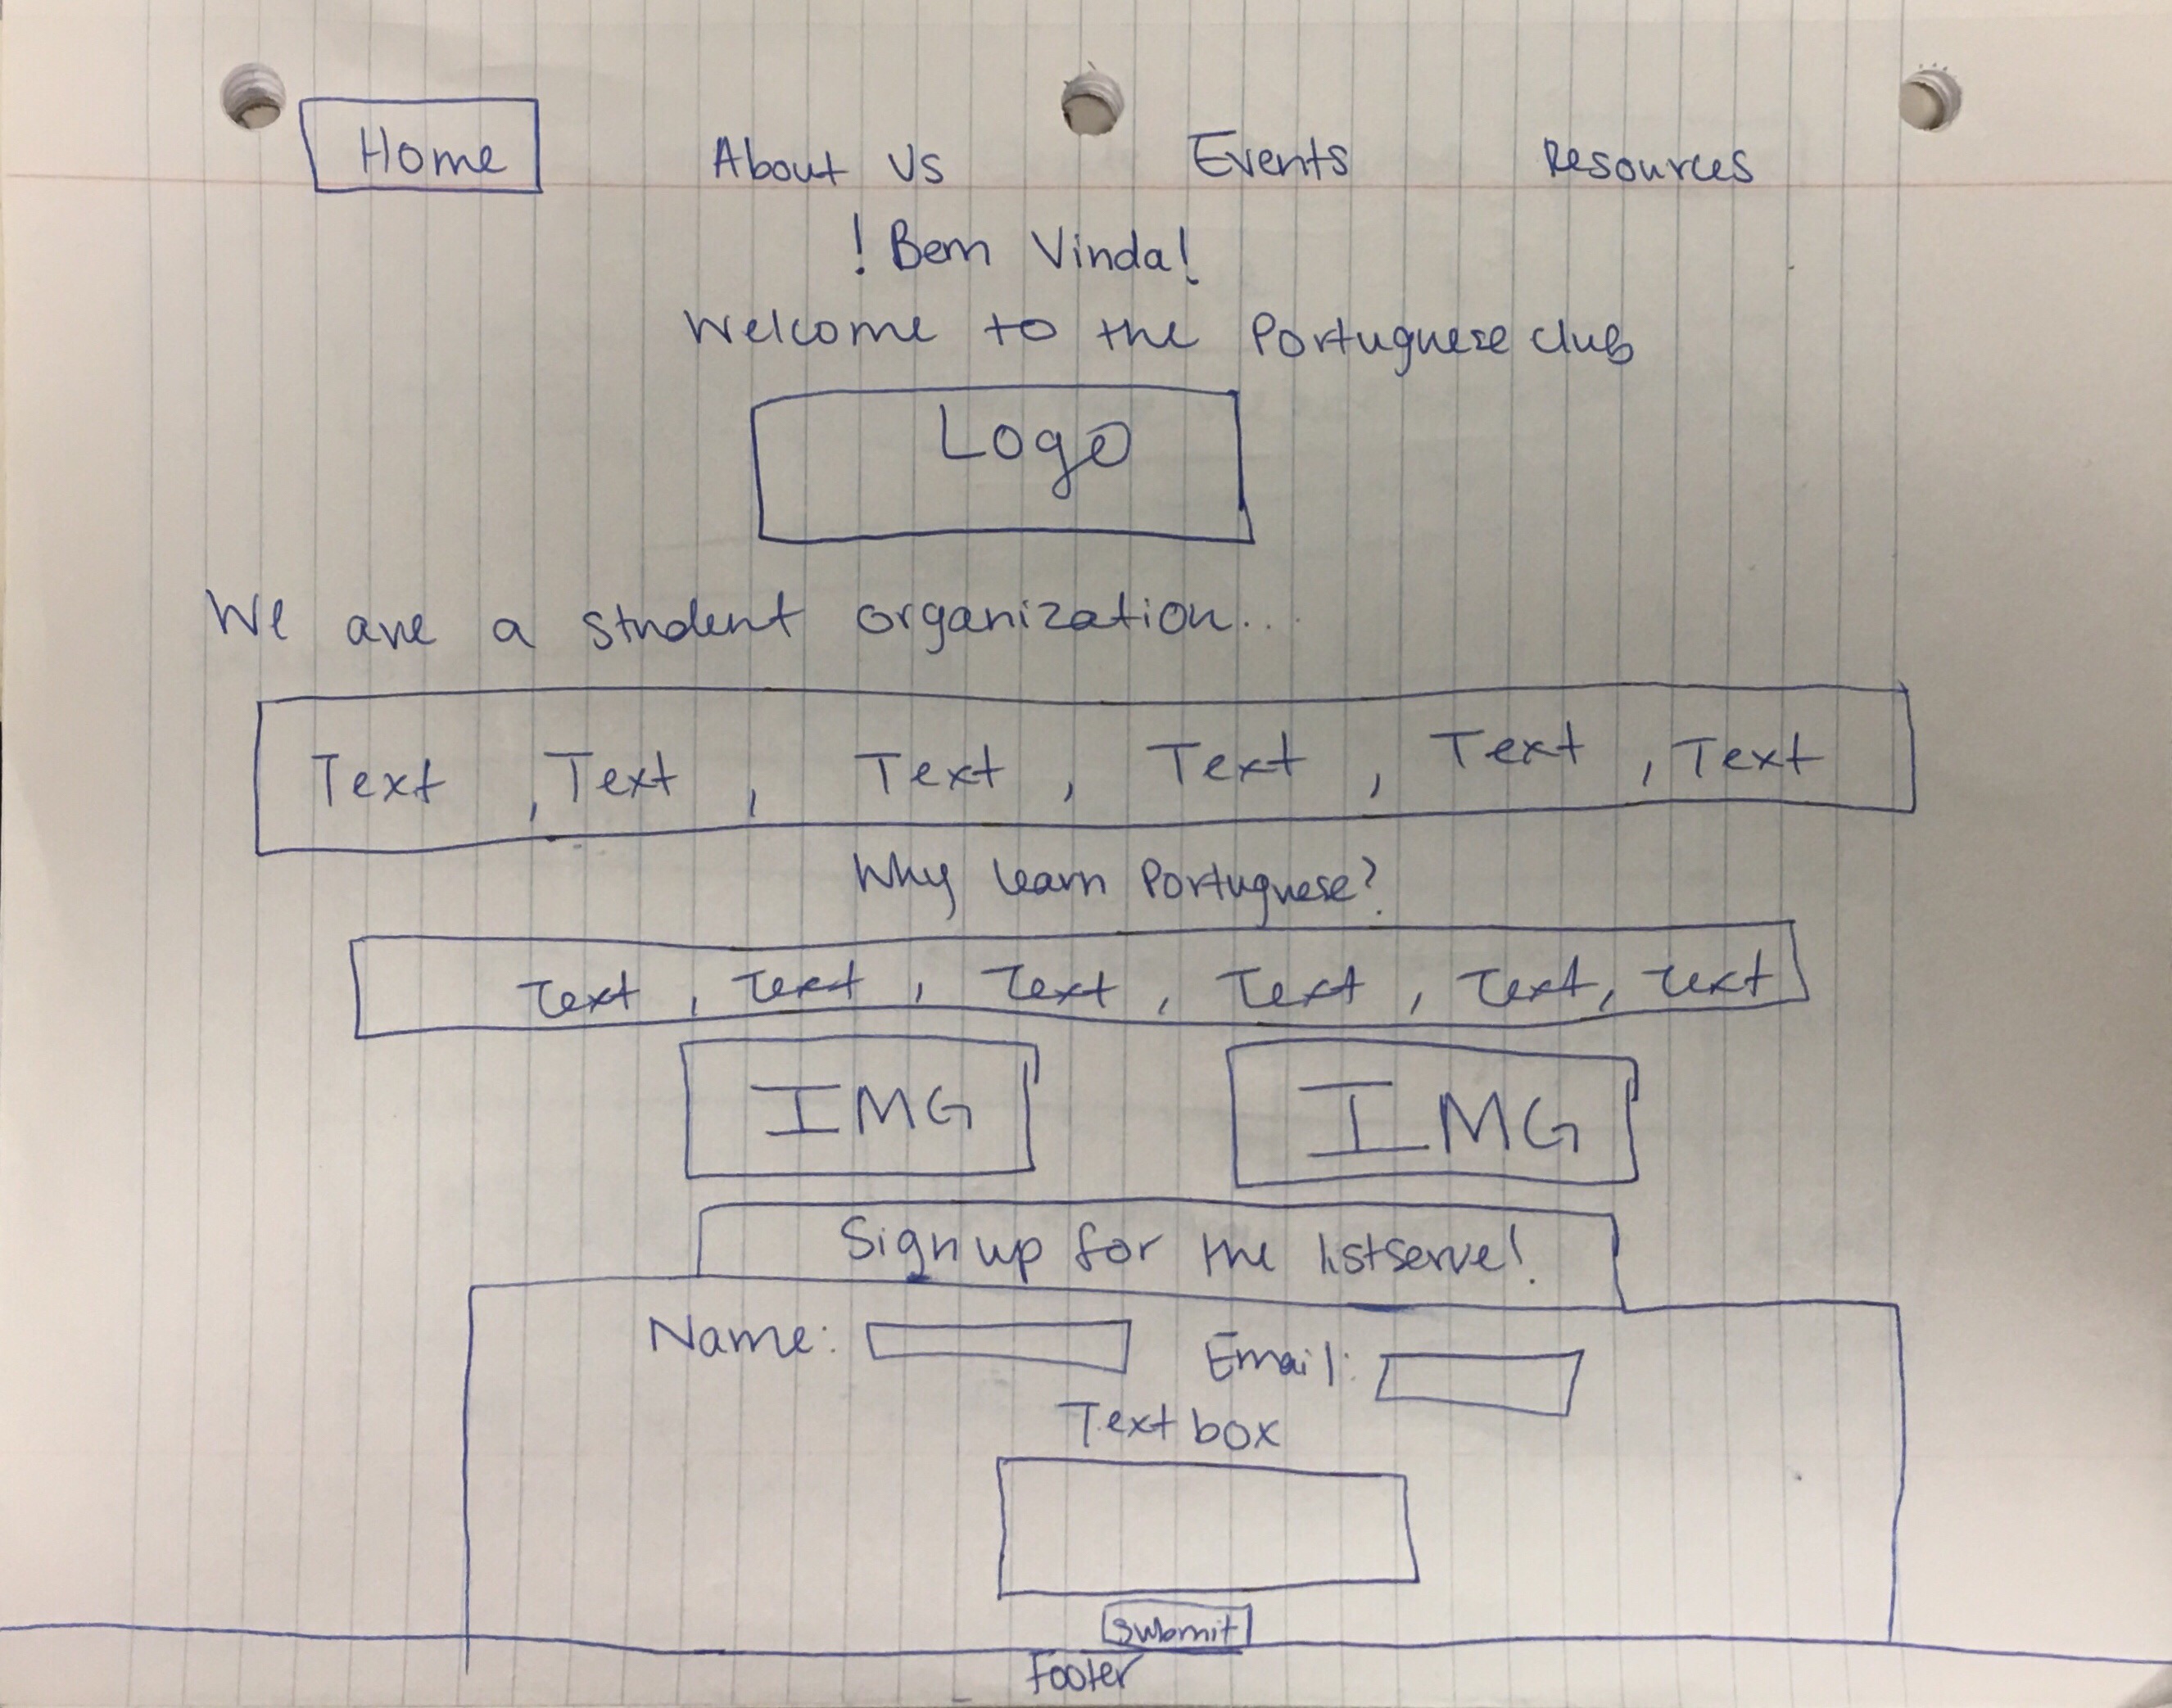 Home About Us Events Resources
! Bem Vinda!
Welcome to the Portuguese club
Logo
We are a student organization...
Text , Text , Text , Text , Text , Text
Why learn Portuguese?
Text , Text , Text , Text , Text, Text
IMG IMG
Sign up for the listserve!
Name: Email:
Text box
Submit
Footer